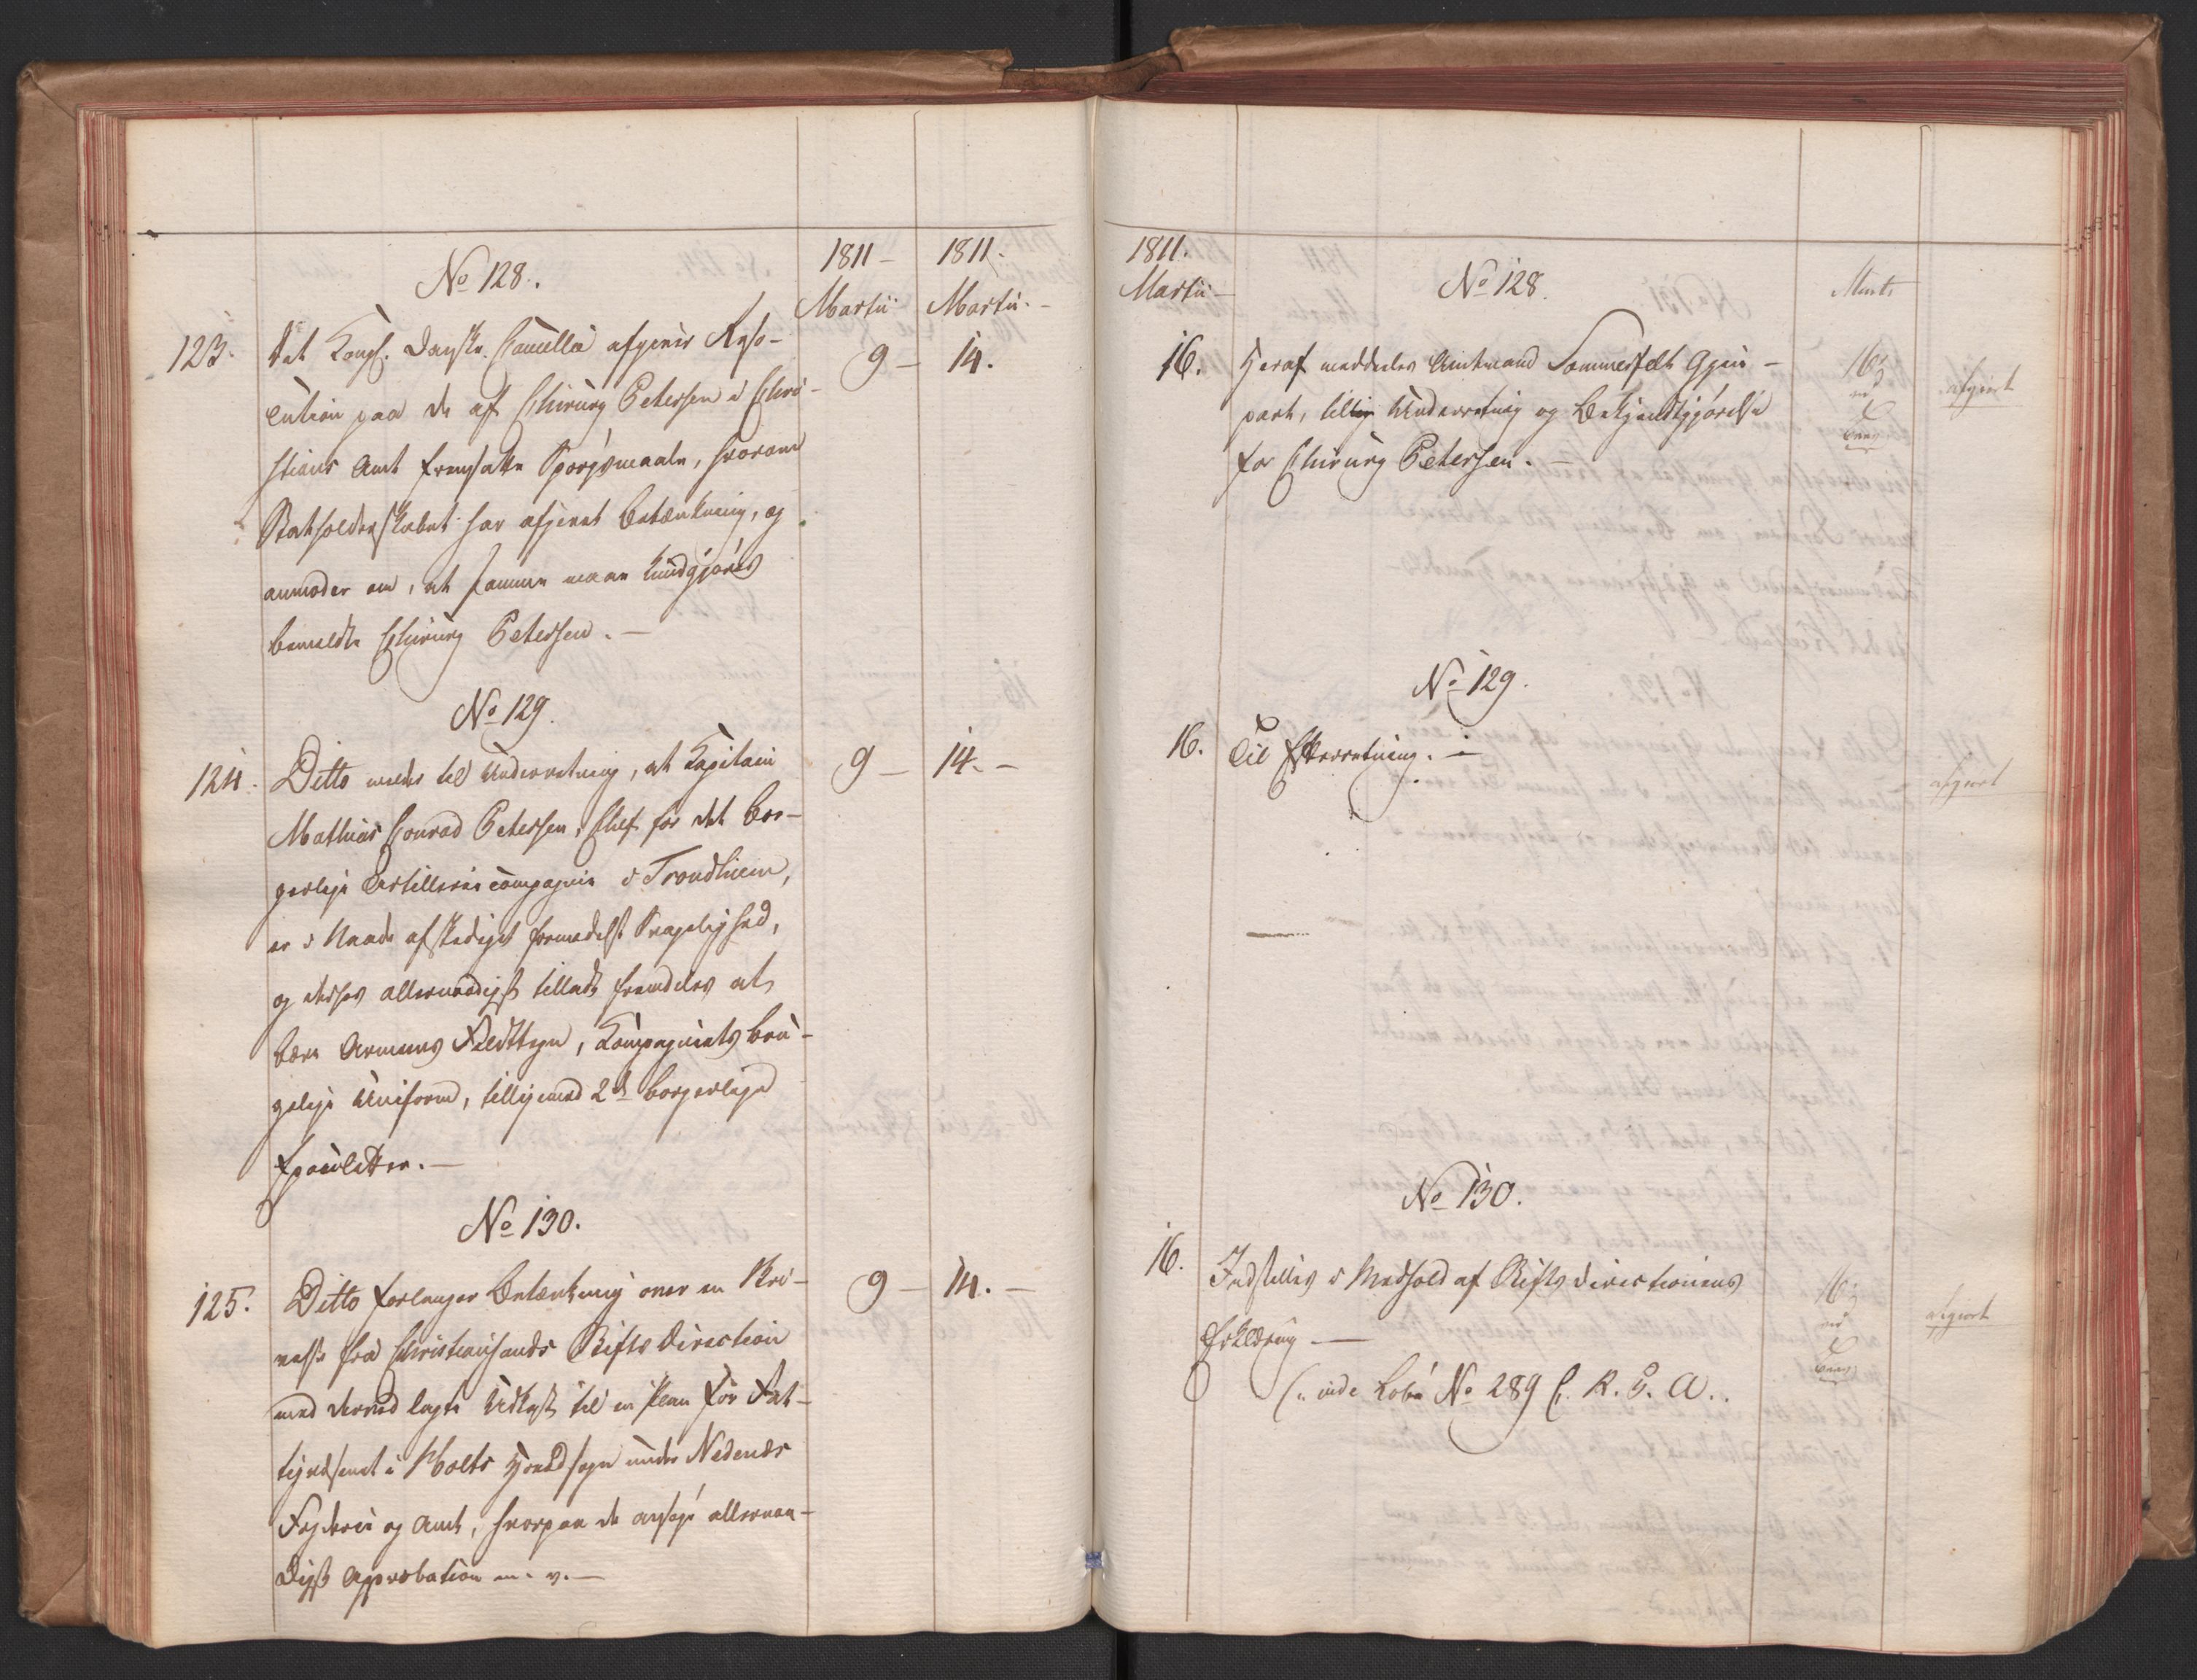 1811 –
1811.
No 128.
Martii
Martii. –
123.
Det Kongl. Danske Cancellie afgiver Reso-
9 –
14.
lution paa de af Chirurg Petersen i Chri-
stians Amt fremsatte Spørgsmaale, hvorom
Statholderskabet har afgivet Betænkning, og
anmoder om, at samme maae kundgjøres
bemeldte Chirurg Petersen. –
No 129.
124.
Ditto melder til Underretning, at Kapitain
9 –
14. –
Mathias Conrad Petersen, Chef for det bor-
gerlige Artilleriecompagnie i Trondhiem,
er i Naade afskediget formedelst Svagelighed,
og derhos allernaadigst tilladt fremdeles at
bære Armeens Feldttegn, Kompagniets bru-
gelige Uniform, tilligemed 2de borgerlige
Epauletter. –
No 130.
125.
Ditto forlanger Betænkning over en Skri-
9 –
14. –
velse fra Christiansands Stifts Direction
med derved lagte Udkast til en Plan for Fat-
tigvæsenet i Holts Hovedsogn under Nedenæs
Fogderie og Amt, hvorpaa de ansøge allernaa-
digst Approbation m. v. –
1811.
Martii –
No 128.
Marti
16.
Heraf meddeles Amtmand Sommerfelt Gjen-
16
afgiort
part, til Underretning og Bekjendtgjørelse
for Chirurg Petersen. –
No 129.
16.
Til Efterretning. –
afgiort
No 130.
16.
Indstilles i Medhold af Stifts Directionens
16
afgiort
Erklæring –
(: vide No 289 C. R. A.